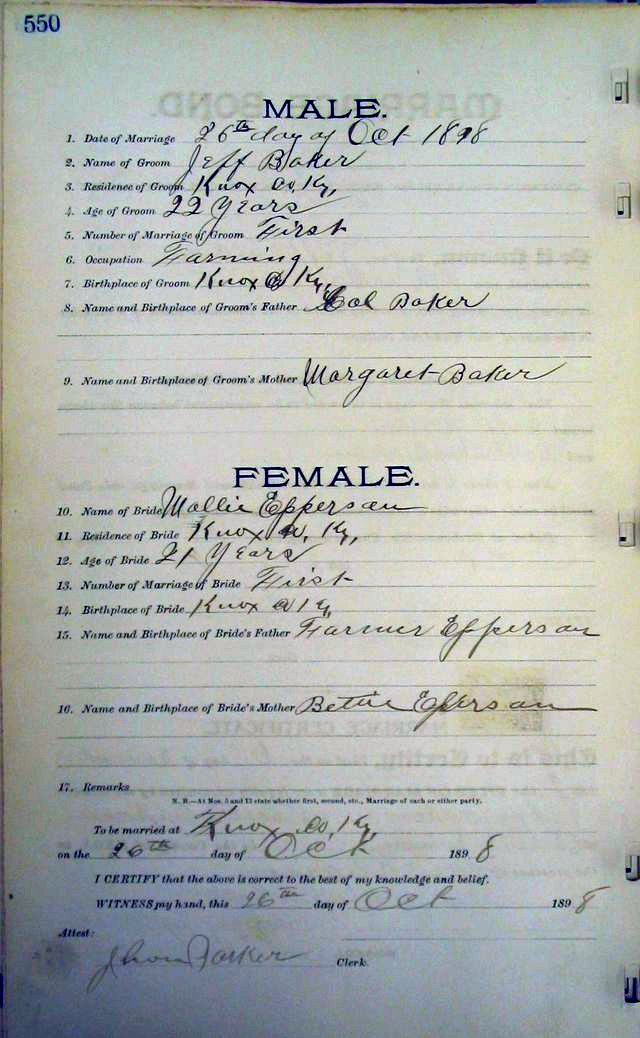 550
MALE.
1. Date of Marriage 26th day of Oct 1898
2. Name of Groom Jeff Baker
3. Residence of Groom Knox Co. Ky,
4. Age of Groom 22 Years
5. Number of Marriage of Groom First
6. Occupation Farming
7. Birthplace of Groom Knox Co Ky,
8. Name and Birthplace of Groom's Father Baker
9. Name and Birthplace of Groom's Mother Margaret Baker
FEMALE.
10. Name of Bride Mollie Epperson
11. Residence of Bride Knox Co, Ky,
12. Age of Bride 21 Years
13. Number of Marriage of Bride First
14. Birthplace of Bride Knox Co Ky,
15. Name and Birthplace of Bride's Father Farmer Epperson
16. Name and Birthplace of Bride's Mother Bettie Epperson
17. Remarks
N. B.—At Nos. 5 and 13 state whether first, second, etc., Marriage of each or either party.
To be married at Knox Co, Ky,
on the 26th day of Oct 1898
I CERTIFY that the above is correct to the best of my knowledge and belief.
WITNESS my hand, this 26th day of Oct 1898
Attest:
Parker Clerk.